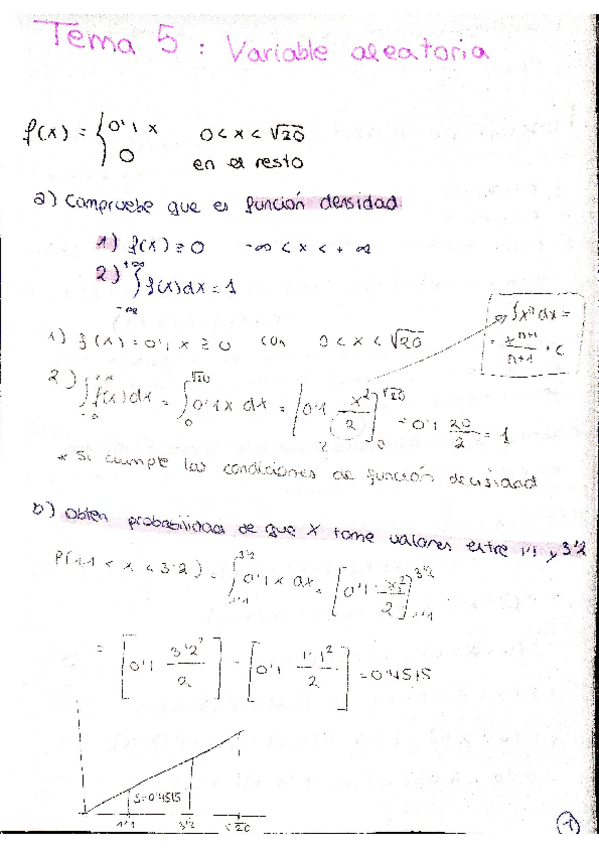 Tema 5 : Variable aleatoria
f(x) = { 0'1 x   0 < x < √20
0   en el resto
a) Compruebe que es función densidad
1) f(x) ≥ 0   -∞ < x < +∞
2) ∫_{-∞}^{+∞} f(x) dx = 1
∫x^n dx =
= x^{n+1}/(n+1) + c
1) f(x) = 0'1 x ≥ 0 con 0 < x < √20
2) ∫_{-∞}^{+∞} f(x) dx = ∫_0^{√20} 0'1 x dx = [0'1 x²/2]_0^{√20} = 0'1 20/2 = 1
* Si cumple las condiciones de función densidad
b) Obten probabilidad de que X tome valores entre 1'1 y 3'2
P(1'1 < x < 3'2) = ∫_{1'1}^{3'2} 0'1 x dx = [0'1 · x²/2]_{1'1}^{3'2}
= [0'1 3'2²/2] - [0'1 1'1²/2] = 0'4515
S=0'4515
1'1   3'2   √20
1